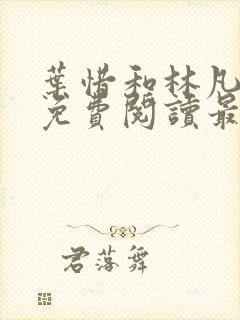 葉惜和林凡
免費閱讀最
君落舞